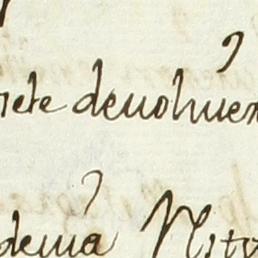 rete deuoluer
demia Nity